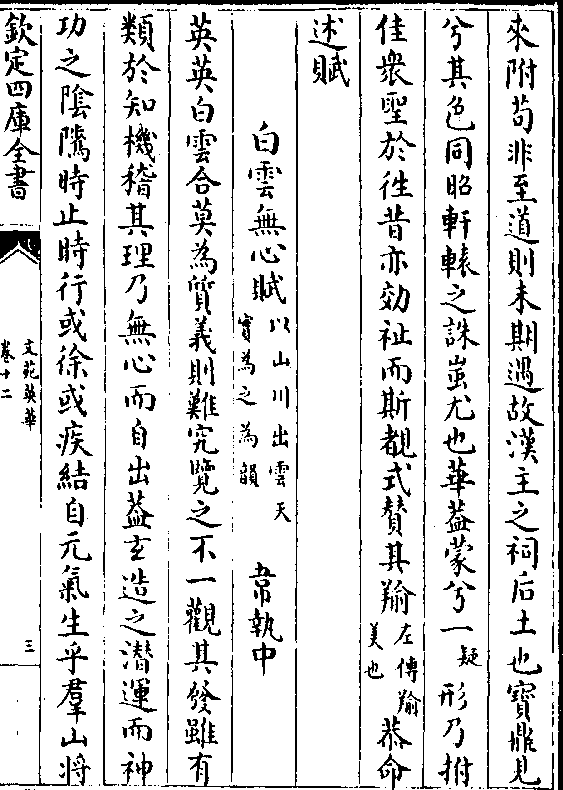 來附苟非至道則未期遇故漢主之祠后土也寶鼎見
兮其色同昭軒轅之誅蚩尤也華蓋蒙兮一疑形乃拊
佳衆聖於徃昔亦効祉而斯覩式賛其羭左傳羭美也恭命
述賦
白雲無心賦以山川出雲天實為之為韻 韋執中
英英白雲合莫為質義則難究覽之不一觀其發雖有
類於知機稽其理乃無心而自出葢玄造之潜運而神
功之陰隲時止時行或徐或疾結自元氣生乎羣山將
欽定四庫全書
文苑英華
卷十二
三